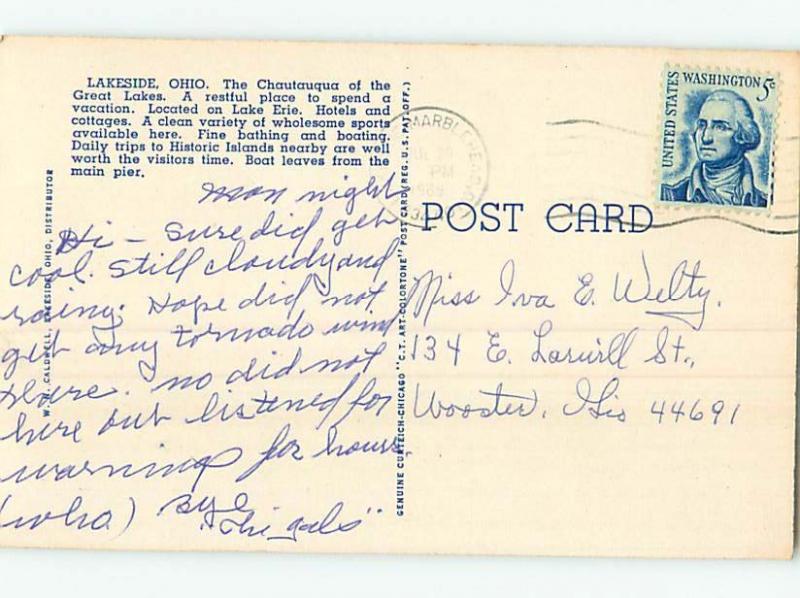 LAKESIDE, OHIO. The Chautauqua of the
Great Lakes. A restful place to spend a
vacation. Located on Lake Erie. Hotels and
cottages. A clean variety of wholesome sports
available here. Fine bathing and boating.
Daily trips to Historic Islands nearby are well
worth the visitors time. Boat leaves from the
main pier.
Mon night
Hi - sure did get
cool. Still cloudy and
rainy. Hope did not
get any tornado wind
there. no did not
here but listened for
warnings for hours.
(who) Bye
"The gals"
W. M. CALDWELL, LAKESIDE, OHIO, DISTRIBUTOR
GENUINE CURTEICH-CHICAGO "C.T. ART-COLORTONE" POST CARD (REG. U.S. PAT. OFF.)
MARBLEHEAD
PM
UNITED STATES
WASHINGTON 5c
POST CARD
Miss Iva E. Welty.
134 E. Larwill St.,
Wooster, Ohio 44691